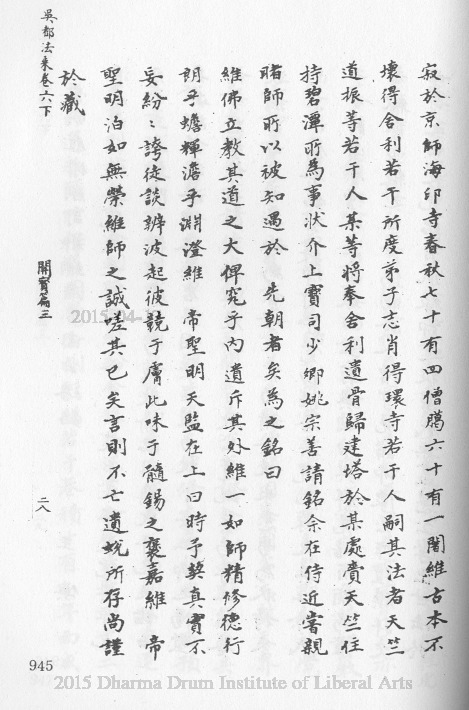 寂於京師海印寺春秋七十有四僧臈六十有一闍維古本不
壞得舍利若干所度弟子志肖得環寺若干人嗣其法者天竺
道振等若干人某等將奉舍利遺骨歸建塔於某處賷天竺住
持碧潭所為事狀介上寶司少卿姚宗善請銘余在侍近嘗親
睹師所以被知遇於 先朝者矣為之銘曰
維佛立教其道之大俾究乎內遺斥其外維一如師精修德行
朗乎蟾輝澹乎淵澄維 帝聖明天監在上曰時予契真實不
妄紛〻誇徒談辨波起彼競于膚此味于髓錫之褒嘉維 帝
聖明泊如無榮維師之誠嗟其已矣言則不亡遺蛻所存尚謹
於藏
吳都法乘卷六下
開實篇三
二八
945
2015-04-
2015 Dharma Drum Institute of Liberal Arts